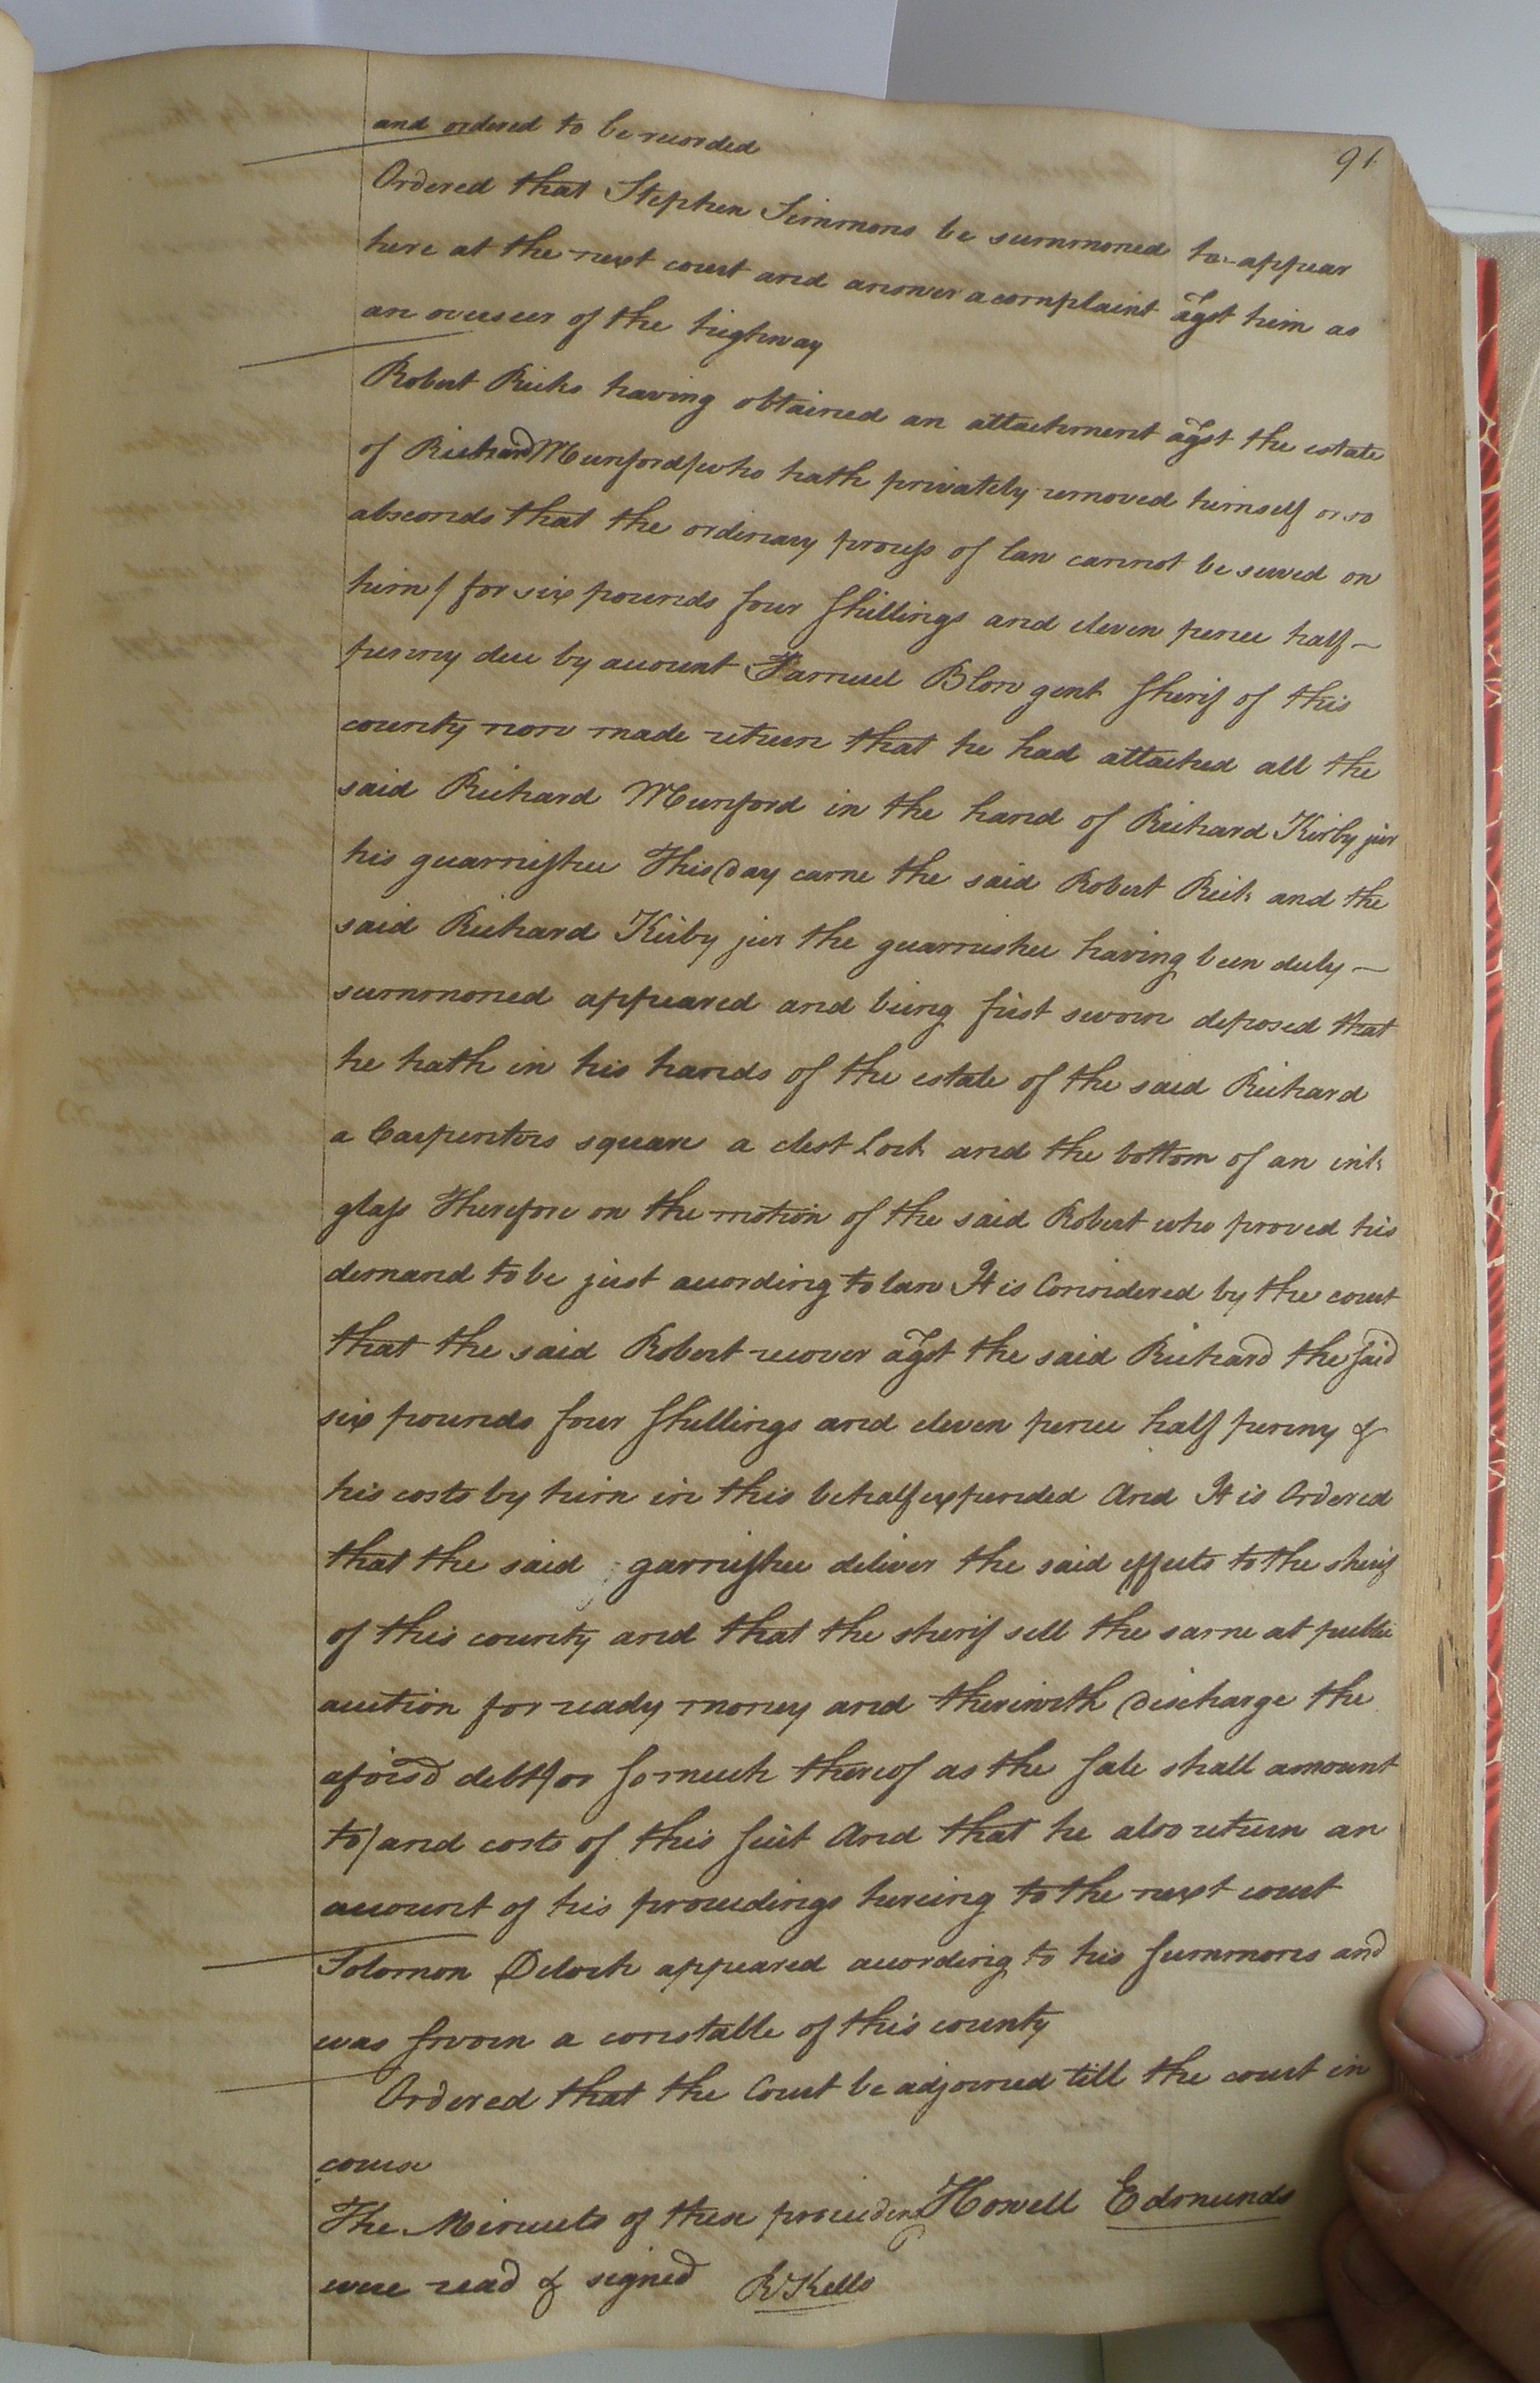 91
and ordered to be recorded
Ordered that Stephen Simmons be summoned to appear
here at the next court and answer a complaint agst him as
an overseer of the highway
Robert Ricks having obtained an attachment agst the estate
of Richard Munford/who hath privately removed himself or so
absconds that the ordinary process of law cannot be served on
him/ for six pounds four shillings and eleven pence half-
penny due by account Samuel Blow gent Sherif of this
county now made return that he had attached all the
said Richard Munford in the hand of Richard Kirby jur
his guarnishee This day came the said Robert Rick and the
said Richard Kirby jur the guarnishee having been duly -
summoned appeared and being first sworn deposed that
he hath in his hands of the estate of the said Richard
a Carpenters square a chest Lock and the bottom of an ink
glass Therefore on the motion of the said Robert who proved his
demand to be just according to law It is Considered by the court
that the said Robert recover agst the said Richard the said
six pounds four shillings and eleven pence half penny &
his costs by him in this behalf expended And It is Ordered
that the said garnishee deliver the said effects to the sherif
of this county and that the sherif sell the same at public
auction for ready money and therewith discharge the
aforesd debt/or so much thereof as the sale shall amount
to/and costs of this suit And that he also return an
account of his proceedings hereing to the next court
Solomon Deloch appeared according to his summons and
was sworn a constable of this county
Ordered that the Court be adjorned till the court in
course
The Minuets of these proceedings Howell Edmunds
were read & signed R Kello